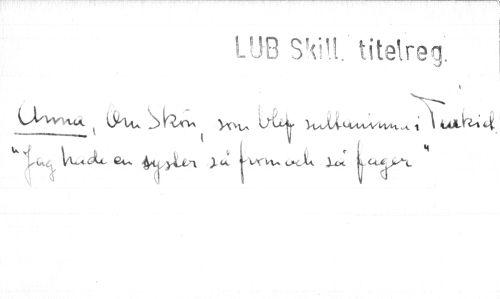 LUB Skill. titelreg.
Anna, Om Skön, som blef sultaninna i Turkiet.
"Jag hade en syster så from och så fager"